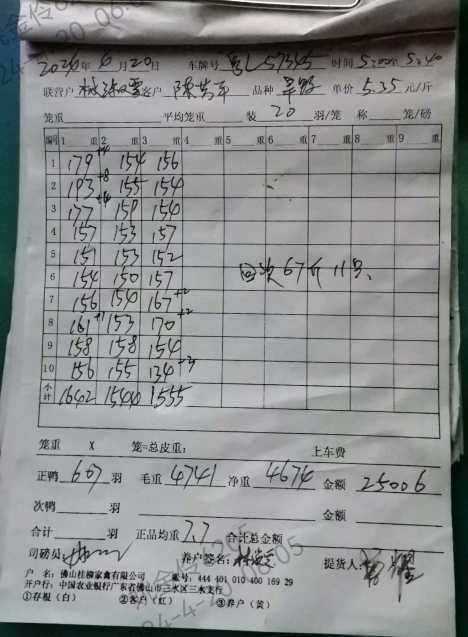 2024年6月20日 车牌号 57335 时间 5:20 5:40
联营户 客户 品种 单价 5.35 元/斤
笼重 平均笼重 装 20 羽/笼 称 笼/磅
编号 1 重 2 重 3 重 4 重 5 重 6 重 7 重 8 重 9 重
1 179 +4 154 156
2 193 +8 155 154
3 177 +4 159 154
4 157 153 157
5 151 153 152
6 154 150 157
7 156 154 167 +2
8 161 +1 153 170 +2
9 158 158 154
10 156 155 134
小计 1642 1544 1555
回收 67斤 11号
笼重 X 笼=总皮重: 上车费
正鸭 607 羽 毛重 4741 净重 4674 金额 25006
次鸭 羽 金额
合计 羽 正品均重 7.7 合计总金额
司磅员: 养户签名: 提货人:
户 名: 佛山桂柳家禽有限公司 账号: 444 401 010 400 169 29
开户行: 中国农业银行广东省佛山市三水区三水支行
①存根(白) ②客户(红) ③养户(黄)